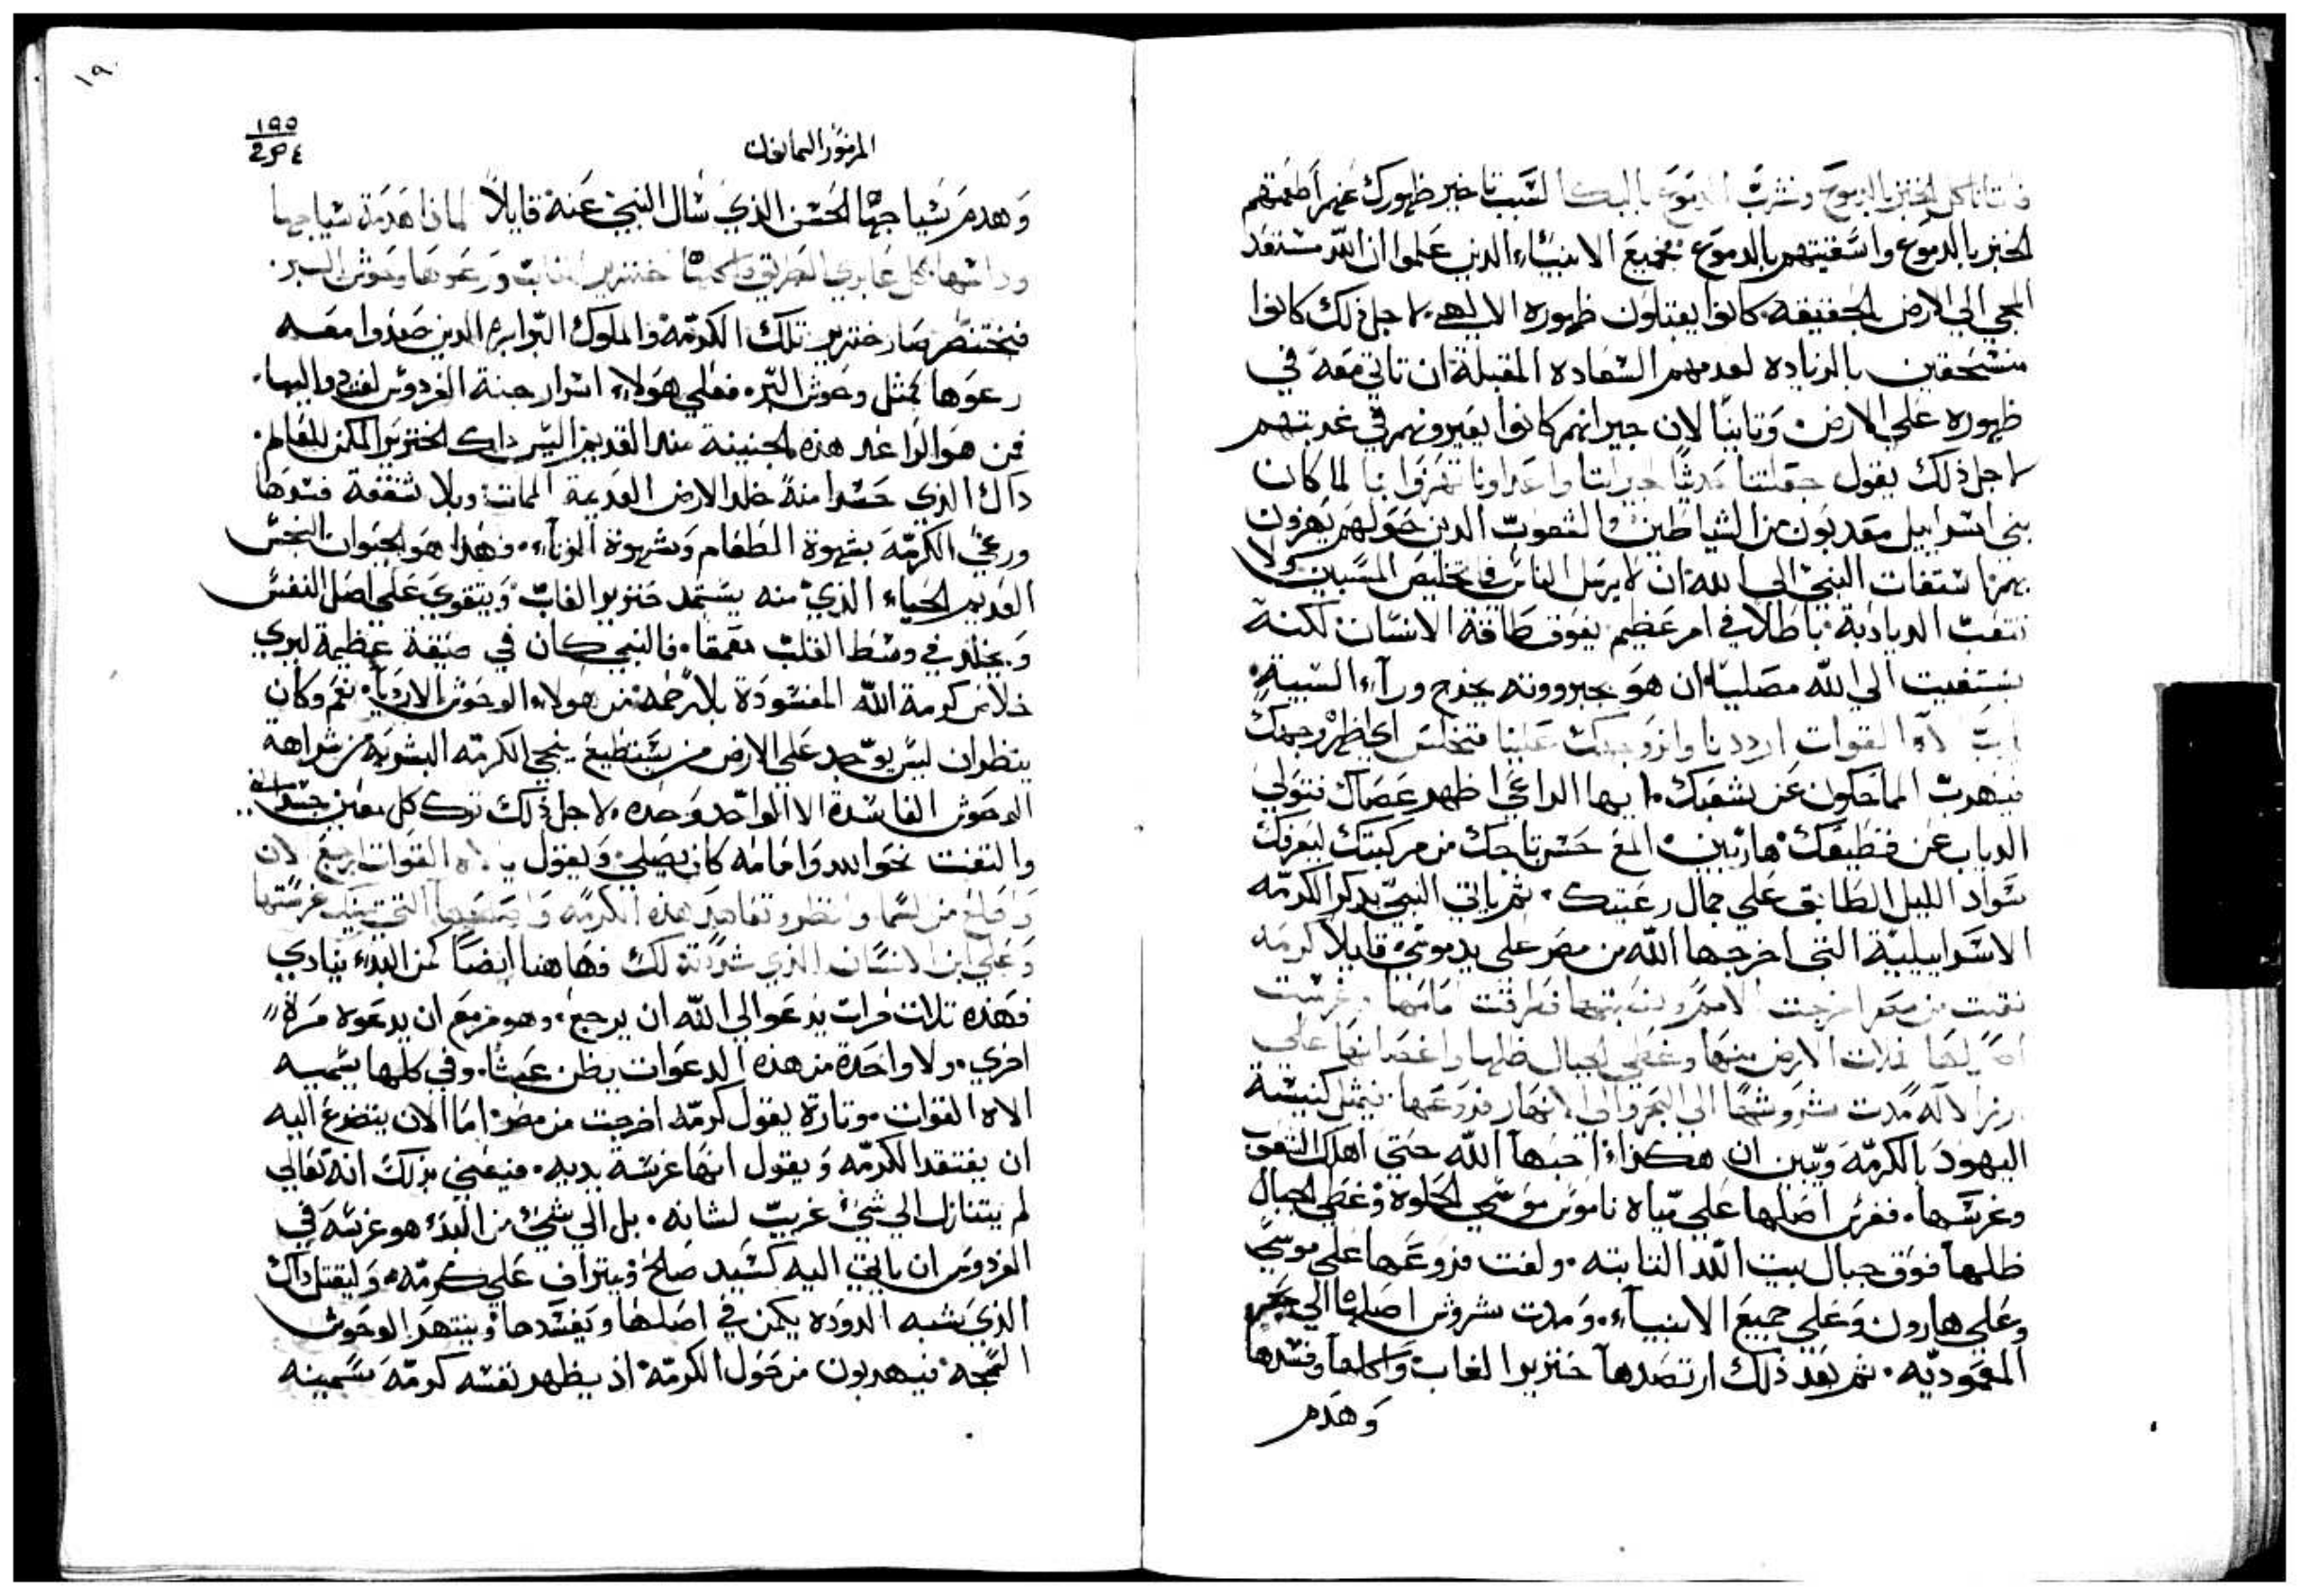 فاننا ناكل الخبز بالدموع ونشرب الدموع بالبكا لسبب تاخير ظهورك عنهم اطعمتهم
الخبز بالدموع واسقيتهم بالدموع فجميع الانبياء الذين علموا ان الله مستعد
المجي الي الارض الحقيقه كانوا يقبلون ظهوره الالهي لاجل ذلك كانوا
منسحقين بالزياده لعدمهم السعاده المقبلة ان تاتي معه في
ظهوره علي الارض وثانيا لان جيرانهم كانوا يعيرونهم في غربتهم
لاجل ذلك يقول جعلتنا حديثا لجيراننا واعداونا تهزوا بنا لما كان
بني اسراييل معذبون من الشياطين والشعوب الذين حولهم يهزون
بهم استغاث النبي الي الله ان لا يرسل الناس في تخليص المسبيين لا
تتعب الديادبة باطلا في امر عظيم يفوق طاقة الانسان لكنه
يستغيث الي الله مصليا ان هو بجبروته يخرج وراء السبية
يارب لاه القوات ارددنا وانر وجهك علينا فنخلص اي اظهر وجهك
فيهرب الماحكون عن شعبك ايها الراعي اظهر عصاك فتولي
الدياب عن قطيعك هاربين المع حسن تاجك من مركبتك ليعرفك
سواد الليل الطابق علي جمال رعيتك ثم ياتي النبي بذكر الكرمه
الاسراييلية التي اخرجها الله من مصر علي يد موسي قايلا كرمه
نقلت من مصر اخرجت الامم ونصبتها فطرقت امامها وغرست
اصولها فملات الارض منها وغطي الجبال ظلها واغصانها علي
ارز الاله مدت شروشها الي البحر والي الانهار فروعها يمثل كنيسة
اليهود بالكرمه ويبين ان هكذا احبها الله حتي اهلك الشعوب
وغرسها فغرس اصلها علي مياه ناموس موسي الحلوه وغطي الجبال
ظلها فوق جبال بيت الله الثابته ولفت فروعها علي موسي
وعلي هارون وعلي جميع الانبياء ومدت شروش اصلها الي بحر
المعموديه ثم بعد ذلك ارتصدها خنزير الغاب واكلها وفسدها
وهدم
١٩٥
المزمور التمانون
وهدم سياجها الحسن الذي سال النبي عنه قايلا لماذا هدمت سياجها
ودانسها كل عابري الطريق اكلها خنزير الغاب ورعوها وحوش البر
فبختنصر صار خنزير تلك الكرمة والملوك البرابره الذين صعدوا معه
رعوها كمثل وحوش البر فعلي هولاء اسرار جنة الفردوس لفتوا اليها
فمن هو الراعي هذه الجنينة منذ القديم اليس ذاك الخنزير المكمن للعالم
ذاك الذي حسدا منه خلد الارض العديمة الممات وبلا شفقة فسدها
ورعي الكرمة بشهوة الطعام وشهوة الزناء فهذا هو الحيوان النجس
العديم الحياء الذي منه يستمد خنزير الغاب ويتقوي علي اصل النفس
ويخلد في وسط القلب معمقا فالنبي كان في ضيقة عظيمة ليري
خلاص كرمة الله المفسودة بلا رحمه من هولاء الوحوش الاردياء نعم وكان
ينظر ان ليس يوجد علي الارض من يستطيع ينجي الكرمه البشريه من شراهة
الوحوش الفاسدة الا الواحد وحده لاجل ذلك ترك كل معين جسداني
والتفت نحو الله وامامه كان يصلي ويقول يا لاه القوات ارجع الان
واطلع من السما وانظر وتعاهد هذه الكرمه واصلحها التي يمينك غرستها
وعلي ابن الانسان الذي شددته لك فها هنا ايضا كمن البدء ينادي
فهذه تلات مرات يدعو الي الله ان يرجع وهو مزمع ان يدعوه مرة
اخري ولا واحدة من هذه الدعوات يظن عبثا وفي كلها يسميه
الاه القوات وتارة يقول كرمه اخرجت من مصر اما الان يتضرع اليه
ان يفتقد الكرمه ويقول انها غرسة يديه فيعني بذلك انه تعالي
لم يتنازل الي شي غريب لشانه بل الي شي من البدء هو غرسه في
الفردوس ان ياتي اليه كسيد صالح ويتراف علي كرمه وليقتل ذاك
الذي يشبه الدوده يكمن في اصلها ويفسدها وينتهر الوحوش
السمجه فيهربون من حول الكرمه اذ يظهر نفسه كرمه سمينه